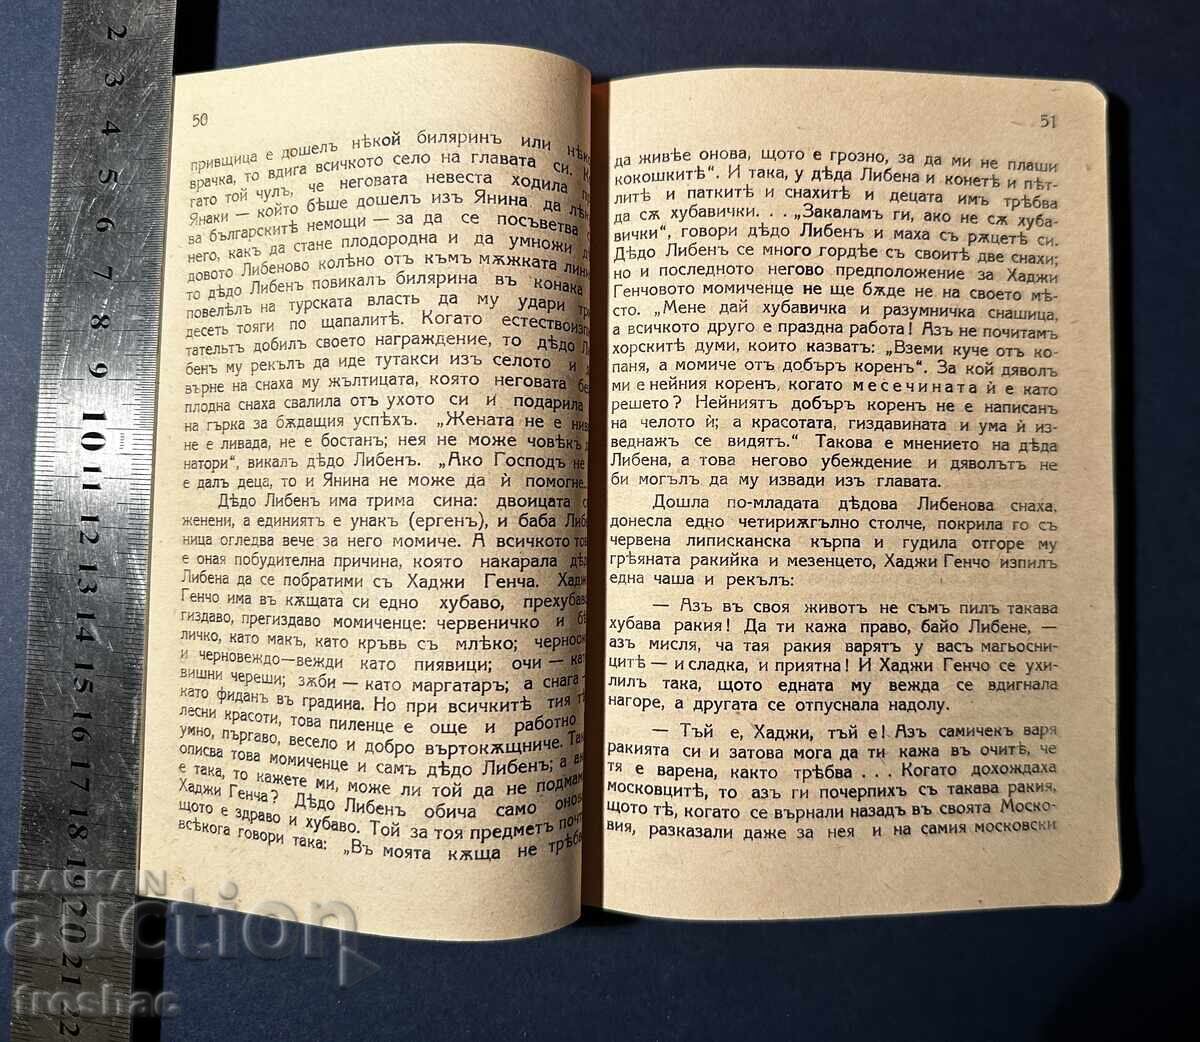 50
привщица е дошелъ нѣкой биляринъ или нѣко
врачка, то вдига всичкото село на главата си. К
гато той чулъ, че неговата невеста ходила п
Янаки — който бѣше дошелъ изъ Янина да лѣк
ва българските немощи — за да се посъветва
него, какъ да стане плодородна и да умножи д
довото Либеново колѣно отъ къмъ мѫжката лини
то дѣдо Либенъ повикалъ билярина въ конака
повелѣлъ на турската власть да му удари три
десеть тояги по щапалитѣ. Когато естествоизпи
тательтъ добилъ своето награждение, то дѣдо Ли
бенъ му рекълъ да иде тутакси изъ селото и д
върне на снаха му жълтицата, която неговата без
плодна снаха свалила отъ ухото си и подарила
на гърка за бѫдащия успѣхъ. „Жената не е нив
не е ливада, не е бостанъ; нея не може човѣкъ д
натори“, викалъ дѣдо Либенъ. „Ако Господъ не
е далъ деца, то и Янина не може да ѝ помогне..
Дѣдо Либенъ има трима сина: двоицата с
женени, а единиятъ е унакъ (ергенъ), и баба Либе
ница огледва вече за него момиче. А всичкото това
е оная побудителна причина, която накарала дѣд
Либена да се побратими съ Хаджи Генча. Хадж
Генчо има въ кѫщата си едно хубаво, прехубаво
гиздаво, прегиздаво момиченце: червеничко и бѣ
личко, като макъ, като кръвь съ млѣко; черноок
и черновеждо—вежди като пиявици; очи — като
вишни череши; зѫби — като маргатаръ; а снага —
като фиданъ въ градина. Но при всичкитѣ тия тѣ
лесни красоти, това пиленце е още и работно
умно, пъргаво, весело и добро въртокѫщниче. Так
описва това момиченце и самъ дѣдо Либенъ; а ак
е така, то кажете ми, може ли той да не подмам
Хаджи Генча? Дѣдо Либенъ обича само онов
щото е здраво и хубаво. Той за тоя предметъ почт
всѣкога говори така: „Въ моята кѫща не трѣба
51
да живѣе онова, щото е грозно, за да ми не плаши
кокошкитѣ“. И така, у дѣда Либена и конетѣ и пѣт-
литѣ и паткитѣ и снахитѣ и децата имъ трѣбва
да сѫ хубавички. . . „Закаламъ ги, ако не сѫ хуба-
вички“, говори дѣдо Либенъ и маха съ рѫцетѣ си.
Дѣдо Либенъ се много гордѣе съ своитѣ две снахи;
но и последното негово предположение за Хаджи
Генчовото момиченце не ще бѫде не на своето мѣ-
сто. „Мене дай хубавичка и разумничка снашица,
а всичкото друго е праздна работа! Азъ не почитамъ
хорскитѣ думи, които казватъ: „Вземи куче отъ ко-
паня, а момиче отъ добъръ коренъ“. За кой дяволъ
ми е нейния коренъ, когато месечината ѝ е като
решето? Нейниятъ добъръ коренъ не е написанъ
на челото ѝ; а красотата, гиздавината и ума ѝ из-
веднажъ се видятъ.“ Такова е мнението на дѣда
Либена, а това негово убеждение и дяволътъ не
би могълъ да му извади изъ главата.
Дошла по-младата дѣдова Либенова снаха,
донесла едно четириѫгълно столче, покрила го съ
червена липисканска кърпа и гудила отгоре му
грѣяната ракийка и мезенцето, Хаджи Генчо изпилъ
една чаша и рекълъ:
— Азъ въ своя животъ не съмъ пилъ такава
хубава ракия! Да ти кажа право, байо Либене, —
азъ мисля, ча тая ракия варятъ у васъ магьосни-
цитѣ — и сладка, и приятна! И Хаджи Генчо се ухи-
лилъ така, щото едната му вежда се вдигнала
нагоре, а другата се отпуснала надолу.
— Тъй е, Хаджи, тъй е! Азъ самичекъ варя
ракията си и затова мога да ти кажа въ очитѣ, че
тя е варена, както трѣбва . . . Когато дохождаха
московцитѣ, то азъ ги почерпихъ съ такава ракия,
щото тѣ, когато се върнали назадъ въ своята Моско-
вия, разказали даже за нея и на самия московски
2
3
4
5
6
7
8
9
10
11
12
13
14
15
16
17
18
19
20
21
22
БАЛКАН
auction
froshac